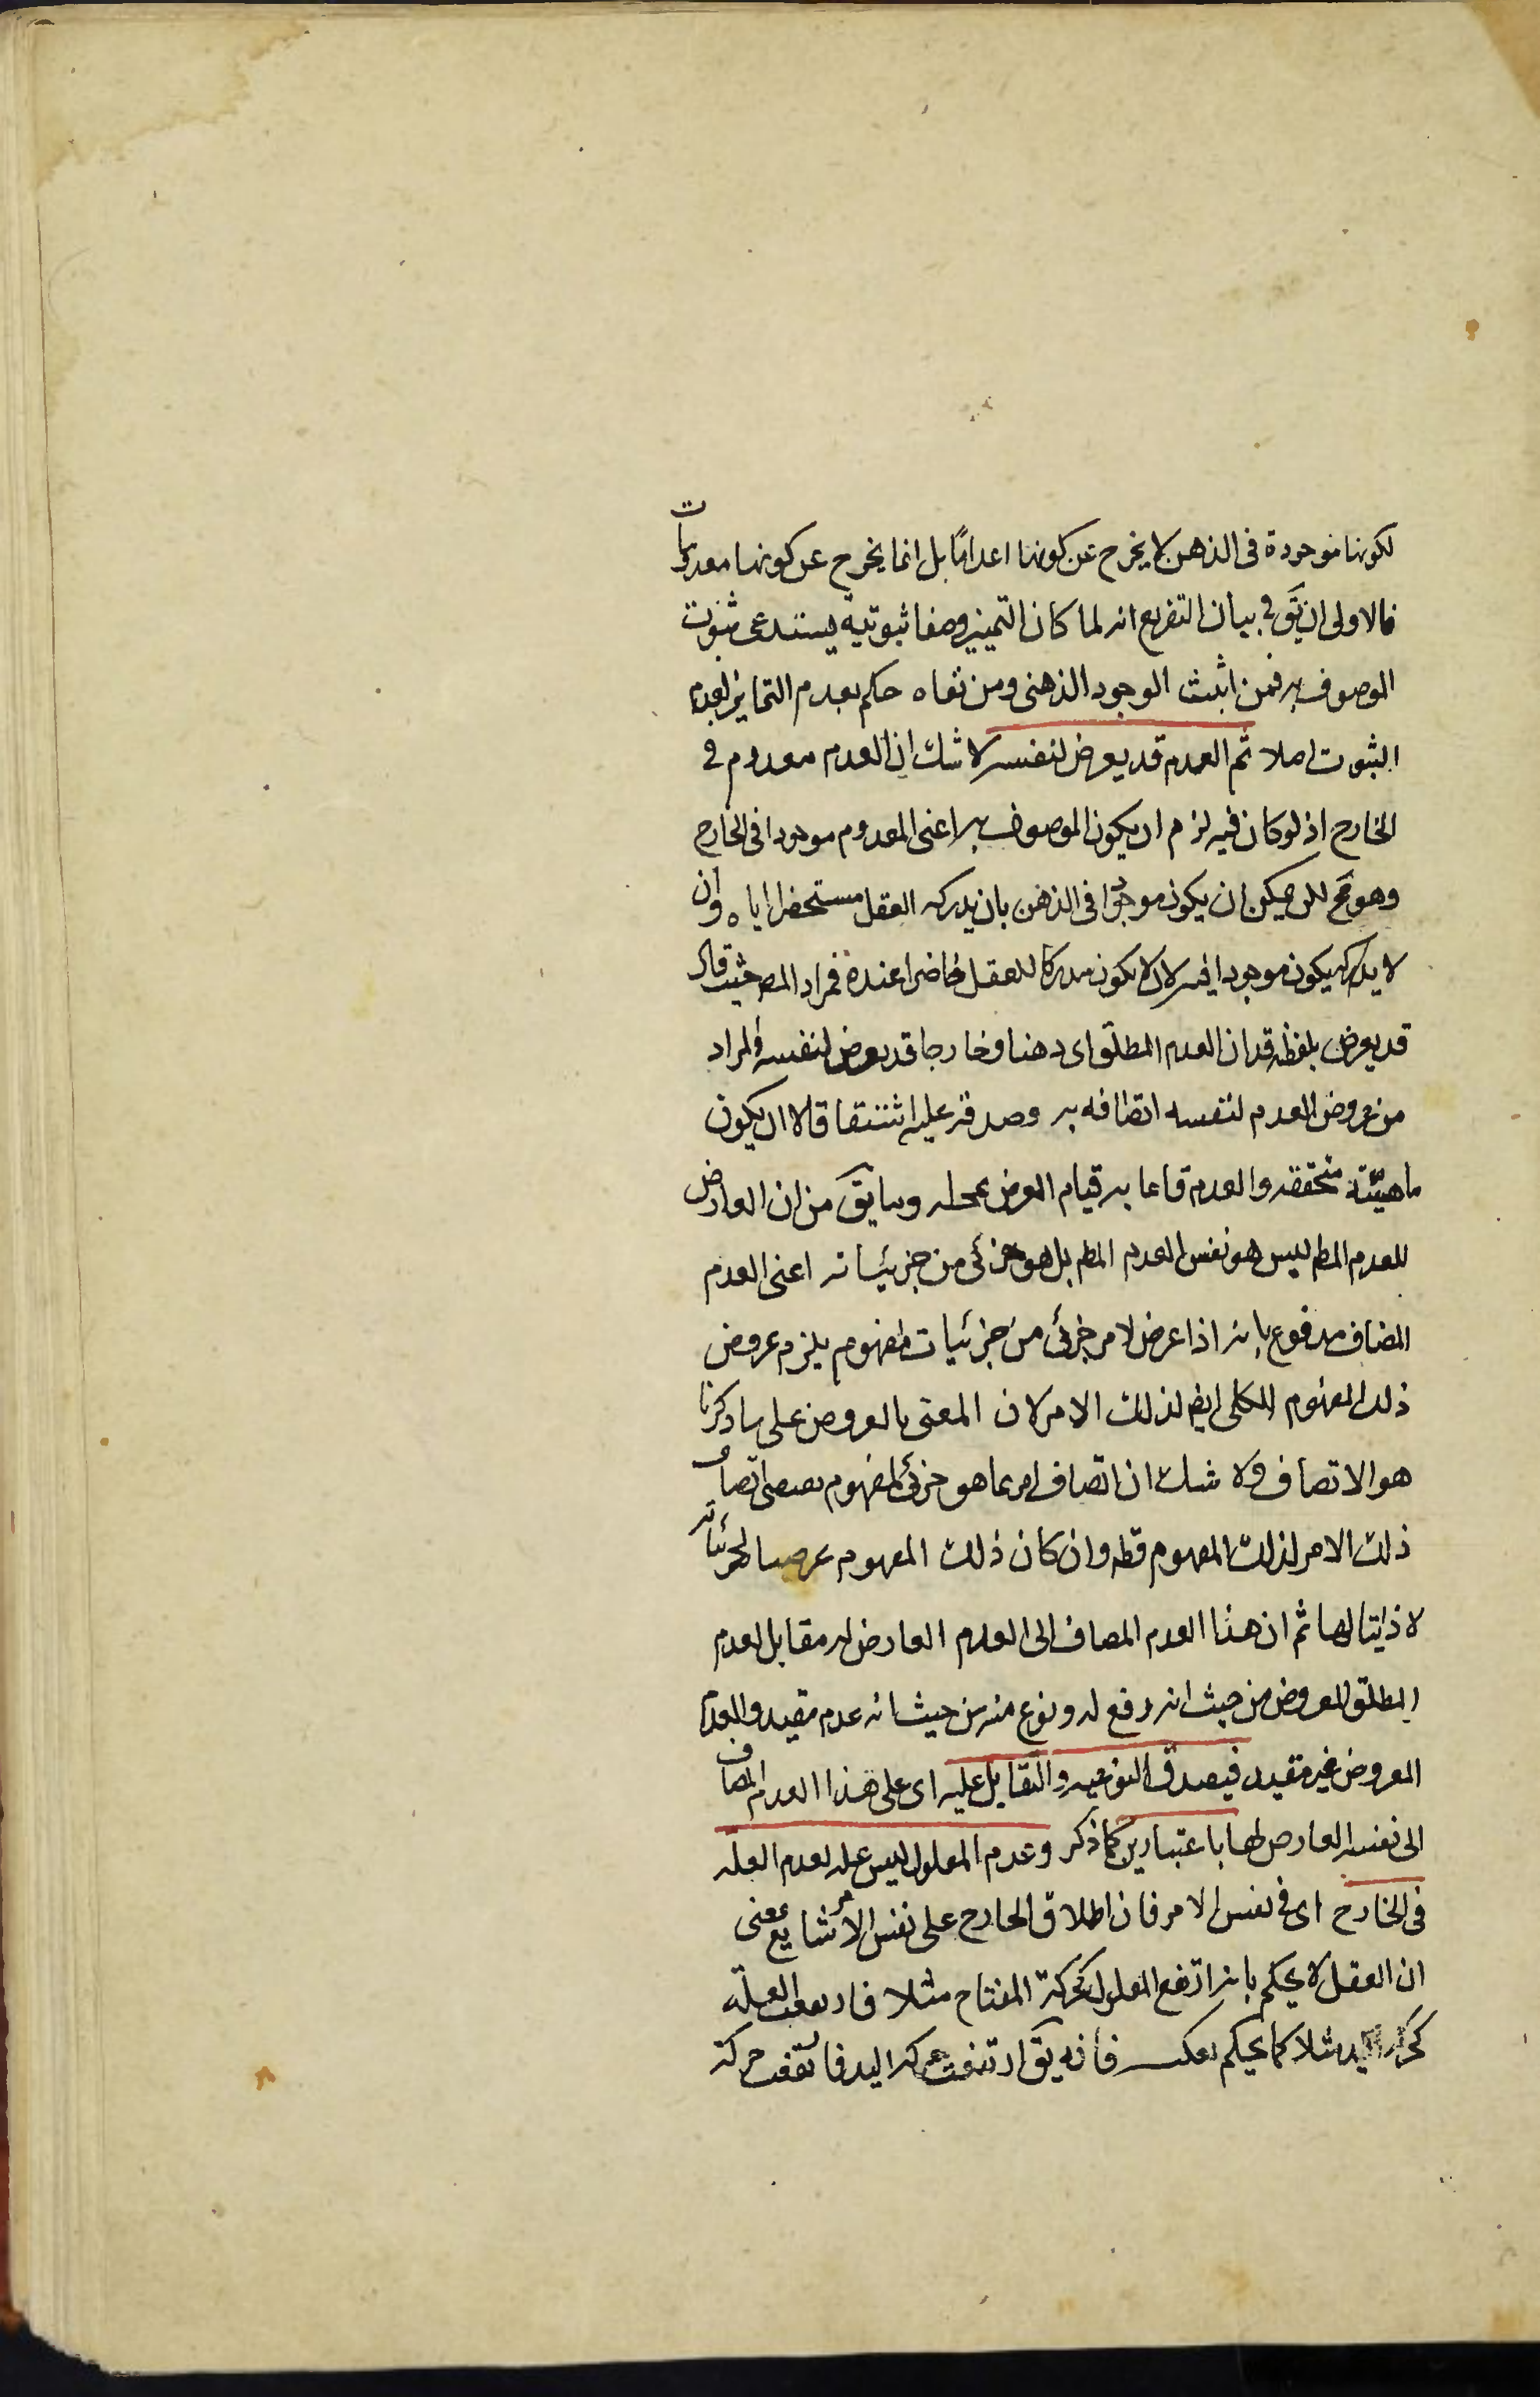 لكونها موجودة في الذهن لا يخرج عن كونها اعدامًا بل انما يخرج عن كونها معدومات
فالاولى ان يق في بيان التفريع انه لما كان التميز وصفا ثبوتيه يستدعى ثبوت
الموصوف به فمن اثبت الوجود الذهنى ومن نفاه حكم بعدم التمايز لعدم
الثبوت اصلا ثم العدم قد يعرض لنفسه لا شك ان العدم معدوم في
الخارج اذ لو كان فيه لزم ان يكون الموصوف به اعنى المعدوم موجودا في الخارج
وهو مح لكن يمكن ان يكون موجودا في الذهن بان يدركه العقل مستحضرا اياه وان
لا يدركه يكون موجودا فيه لان لا يكون مدركا للعقل حاضرا عنده فمراد المص حيث قال
قد يعرض بلفظة قد ان العدم المطلق اى ذهنا وخارجا قد يعرض لنفسه والمراد
من عروض العدم لنفسه اتصافه به وصدقه عليه اشتقاقا لا ان يكون
ماهيته متحققه والعدم قائما به قيام العرض بمحله وما يق من ان العارض
للعدم المطم ليس هو نفس العدم المطم بل هو جزئى من جزئياته اعنى العدم
المضاف مدفوع بانه اذا عرض لامر جزئى من جزئيات مفهوم يلزم عروض
ذلك المفهوم الكلى ايض لذلك الامر لان المعنى بالعروض على ما ذكرنا
هو الاتصاف ولا شك ان اتصاف امر بما هو جزئى لمفهوم يقتضى اتصاف
ذلك الامر لذلك المفهوم قطه وان كان ذلك المفهوم عرضيا لجزئياته
لا ذاتيا لها ثم ان هذا العدم المضاف الى العدم العارض له مقابل لعدم
المطلق المعروض من حيث انه رفع له ونوع منه من حيث انه عدم مقيد والعدم
المعروض غير مقيد فيصدق النوعيه والتقابل عليه اى على هذا العدم المضاف
الى نفسه العارض لها باعتبارين كما ذكر وعدم المعلول ليس عله لعدم العلة
في الخارج اى في نفس الامر فان اطلاق الخارج على نفس الامر شايع بمعنى
ان العقل لا يحكم بانه ارتفع المعلول كحركة المفتاح مثلا فارتفعت العلة
كحركة اليد مثلا كما يحكم بعكسه فانه يق ارتفعت حركه اليد فارتفعت حركة